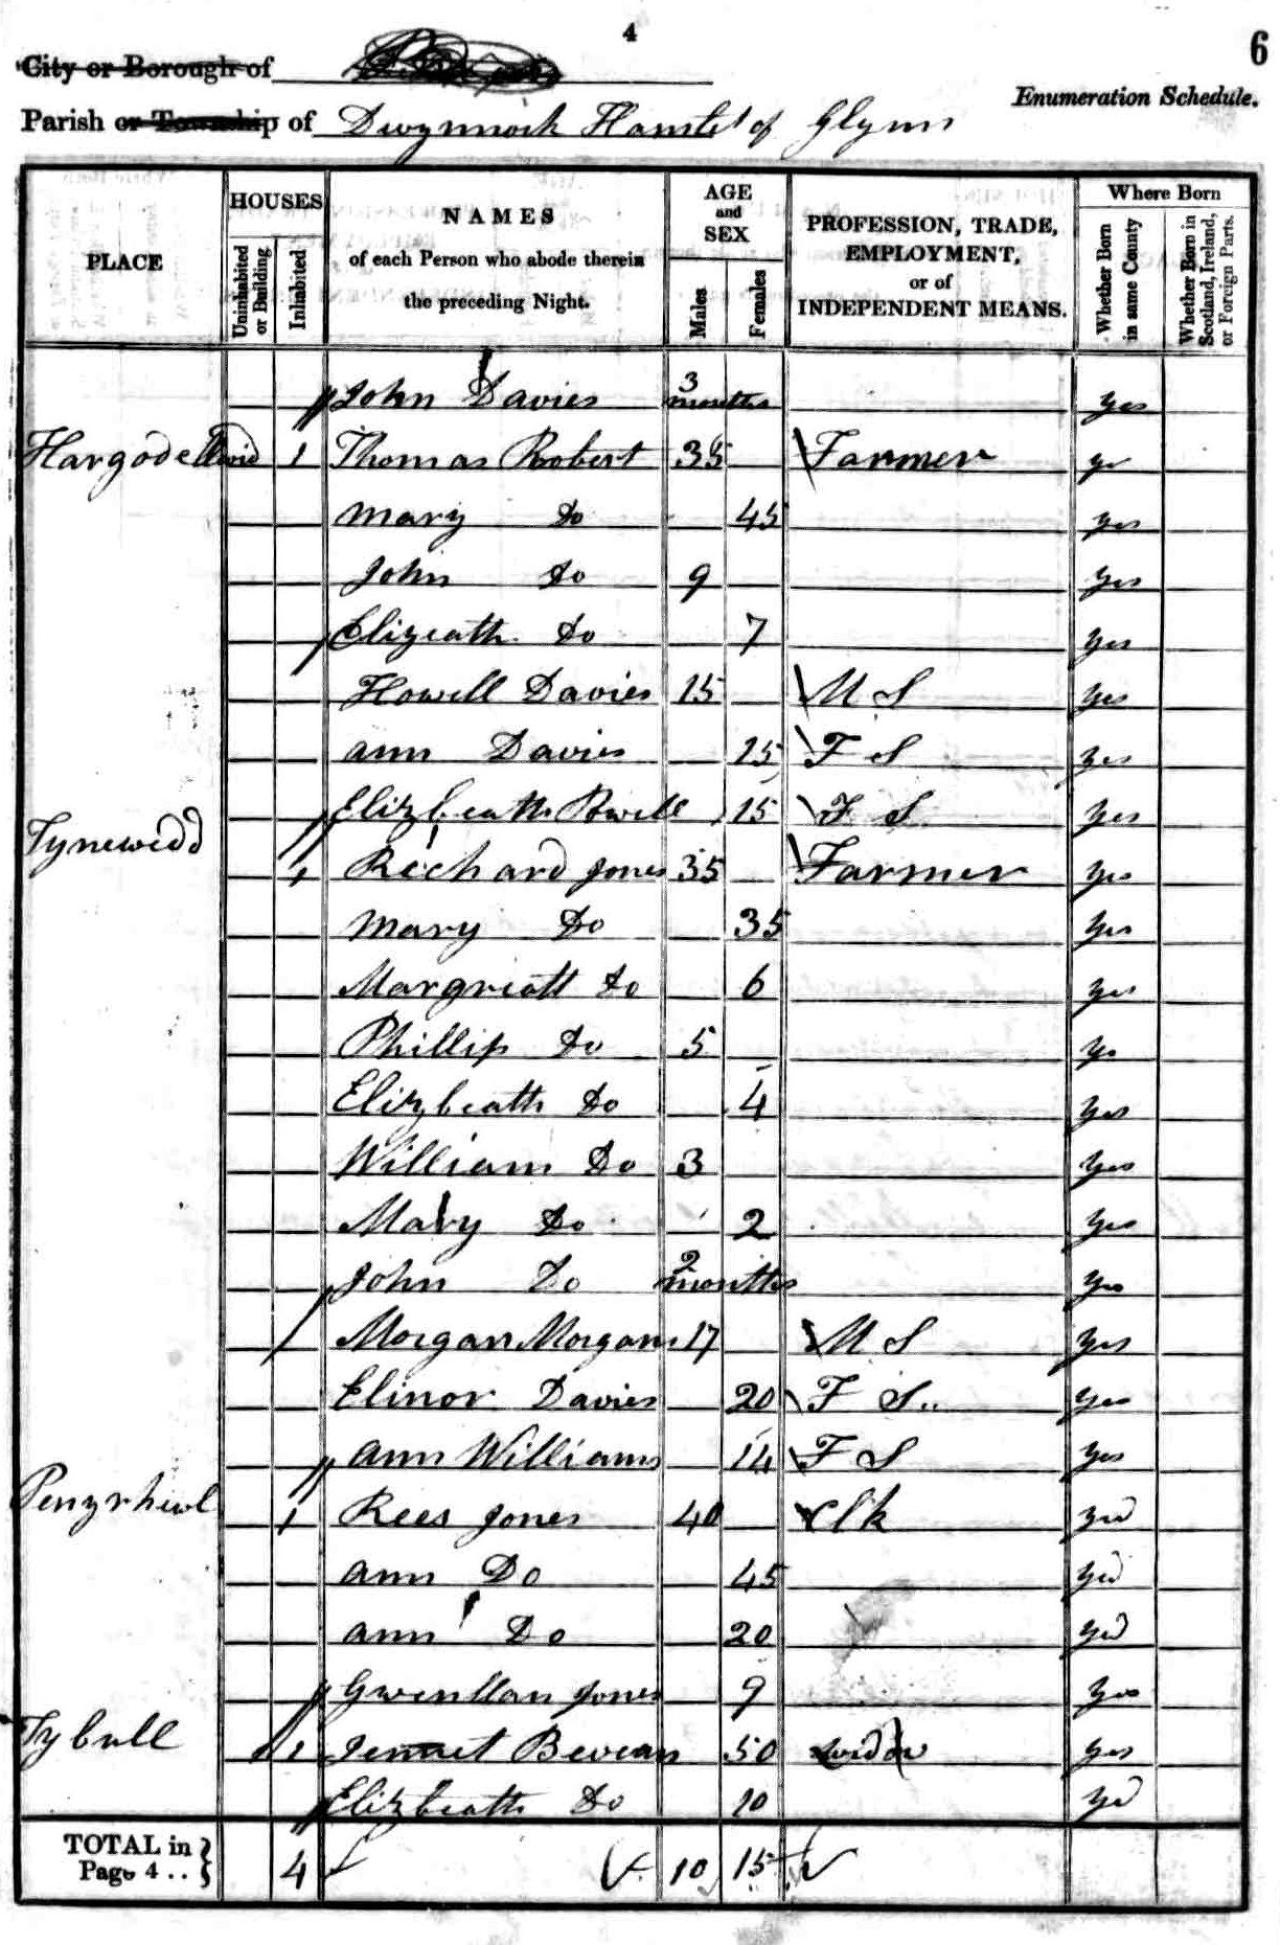 4
6
City or Borough of
Enumeration Schedule.
Parish or Township of Dwynnock Hamlet of Glynn
PLACE
HOUSES
Uninhabited or Building
Inhabited
NAMES
of each Person who abode therein
the preceding Night.
AGE
and
SEX
Males
Females
PROFESSION, TRADE,
EMPLOYMENT,
or of
INDEPENDENT MEANS.
Where Born
Whether Born in same County
Whether Born in Scotland, Ireland, or Foreign Parts.
John Davies 3 months yes
1 Thomas Robert 35 Farmer ye
Mary Do 45 yes
John Do 9 yes
Elizeath Do 7 yes
Howell Davies 15 M S yes
ann Davies 15 F S yes
Elizbeath Powell 15 F S yes
Tynewedd 1 Richard Jones 35 Farmer yes
Mary Do 35 yes
Margreatt Do 6 yes
Phillip Do 5 ye
Elizbeath Do 4 yes
William Do 3 yes
Mary Do 2 yes
John Do 2 months yes
Morgan Morgans 17 M S yes
Elinor Davies 20 F S yes
ann Williams 14 F S yes
Penyrhewl 1 Rees Jones 40 Clk yes
ann Do 45 yes
ann Do 20 yes
Gwenllan Jones 9 yes
Tybull 1 Jennet Bevean 50 widow yes
Elizbeath Do 10 ye
TOTAL in Page 4 .. } 4 10 15